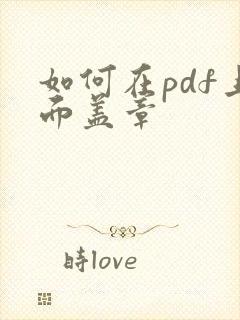 如何在pdf上
而盖章
时love